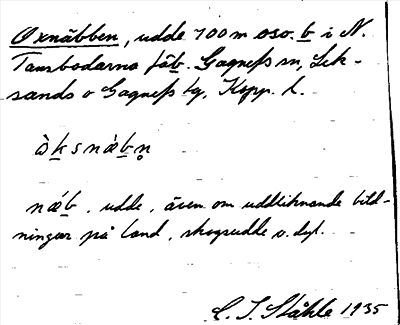 Oxnäbben, udde 700 m oso. b i N.
Tansbodarna fäb. Gagnefs sn, Lek-
sands o Gagnefs tg, Kopp. l.
näb. udde, även om uddliknande bild-
ningar på land, skogsudde o. dyl.
C. I. Ståhle 1935